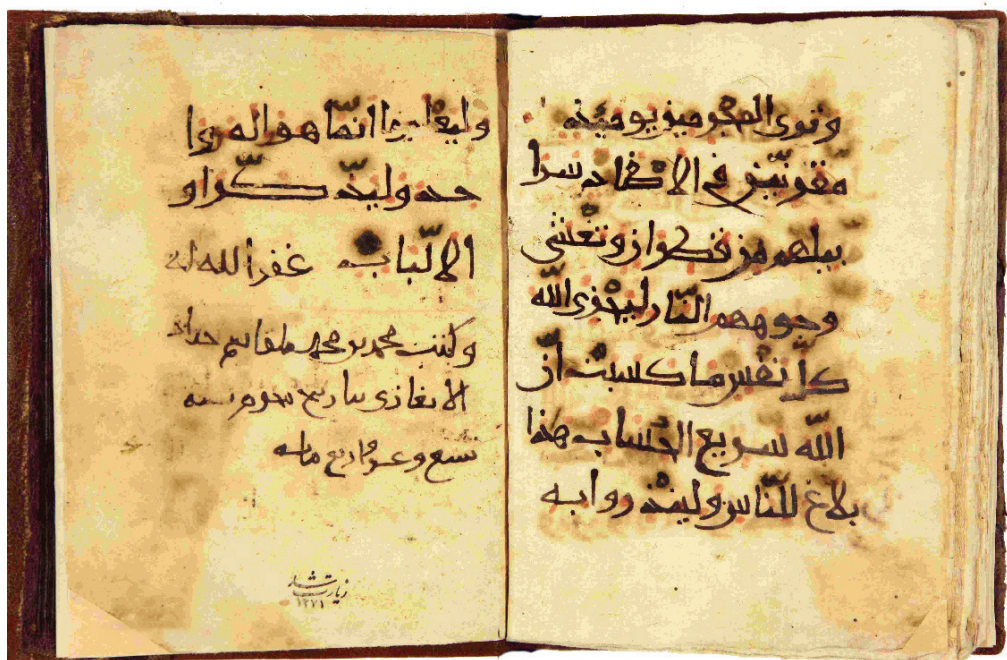 وترى المجرمين يومئذ
مقرنّين في الاصفاد سرا
بيلهم من قطران وتغشى
وجوههم النّار ليجزى الله
كلّ نفس ما كسبت انّ
الله سريع الحساب هذا
بلاغ للنّاس ولينذروا به
وليعلموا انّما هو اله وا
حد وليذّكّر او
الالّباب غفر الله له
وكتب محمد بن محمد
بتاريخ نحو من سنه
تسع واربع مائه
زیارت شد
۱۲۷۱